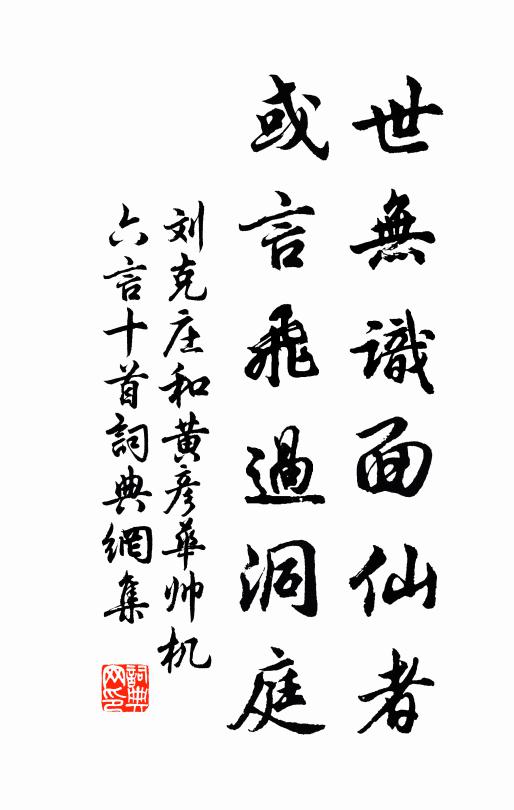 世無識面仙者
或言飛過洞庭
刘克庄和黄彦華帅机
六言十首詞典網集
詞典
网印